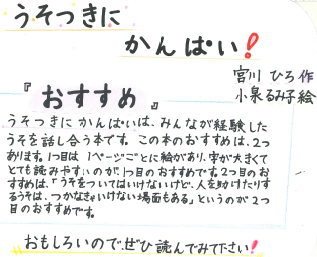 うそつきに
かんぱい!
宮川 ひろ 作
小泉るみ子 絵
『おすすめ』
うそつきにかんぱいは、みんなが経験した
うそを話し合う本です。この本のおすすめは、2つ
あります。1つ目は1ページごとに絵があり、字が大きくて
とても読みやすいのが、1つ目のおすすめです。2つ目のお
すすめは、「うそをついてはいけないけど、人を助けたりす
るうそは、つかなきゃいけない場面もある」というのが2つ
目のおすすめです。
おもしろいので、ぜひ読んでみて下さい!